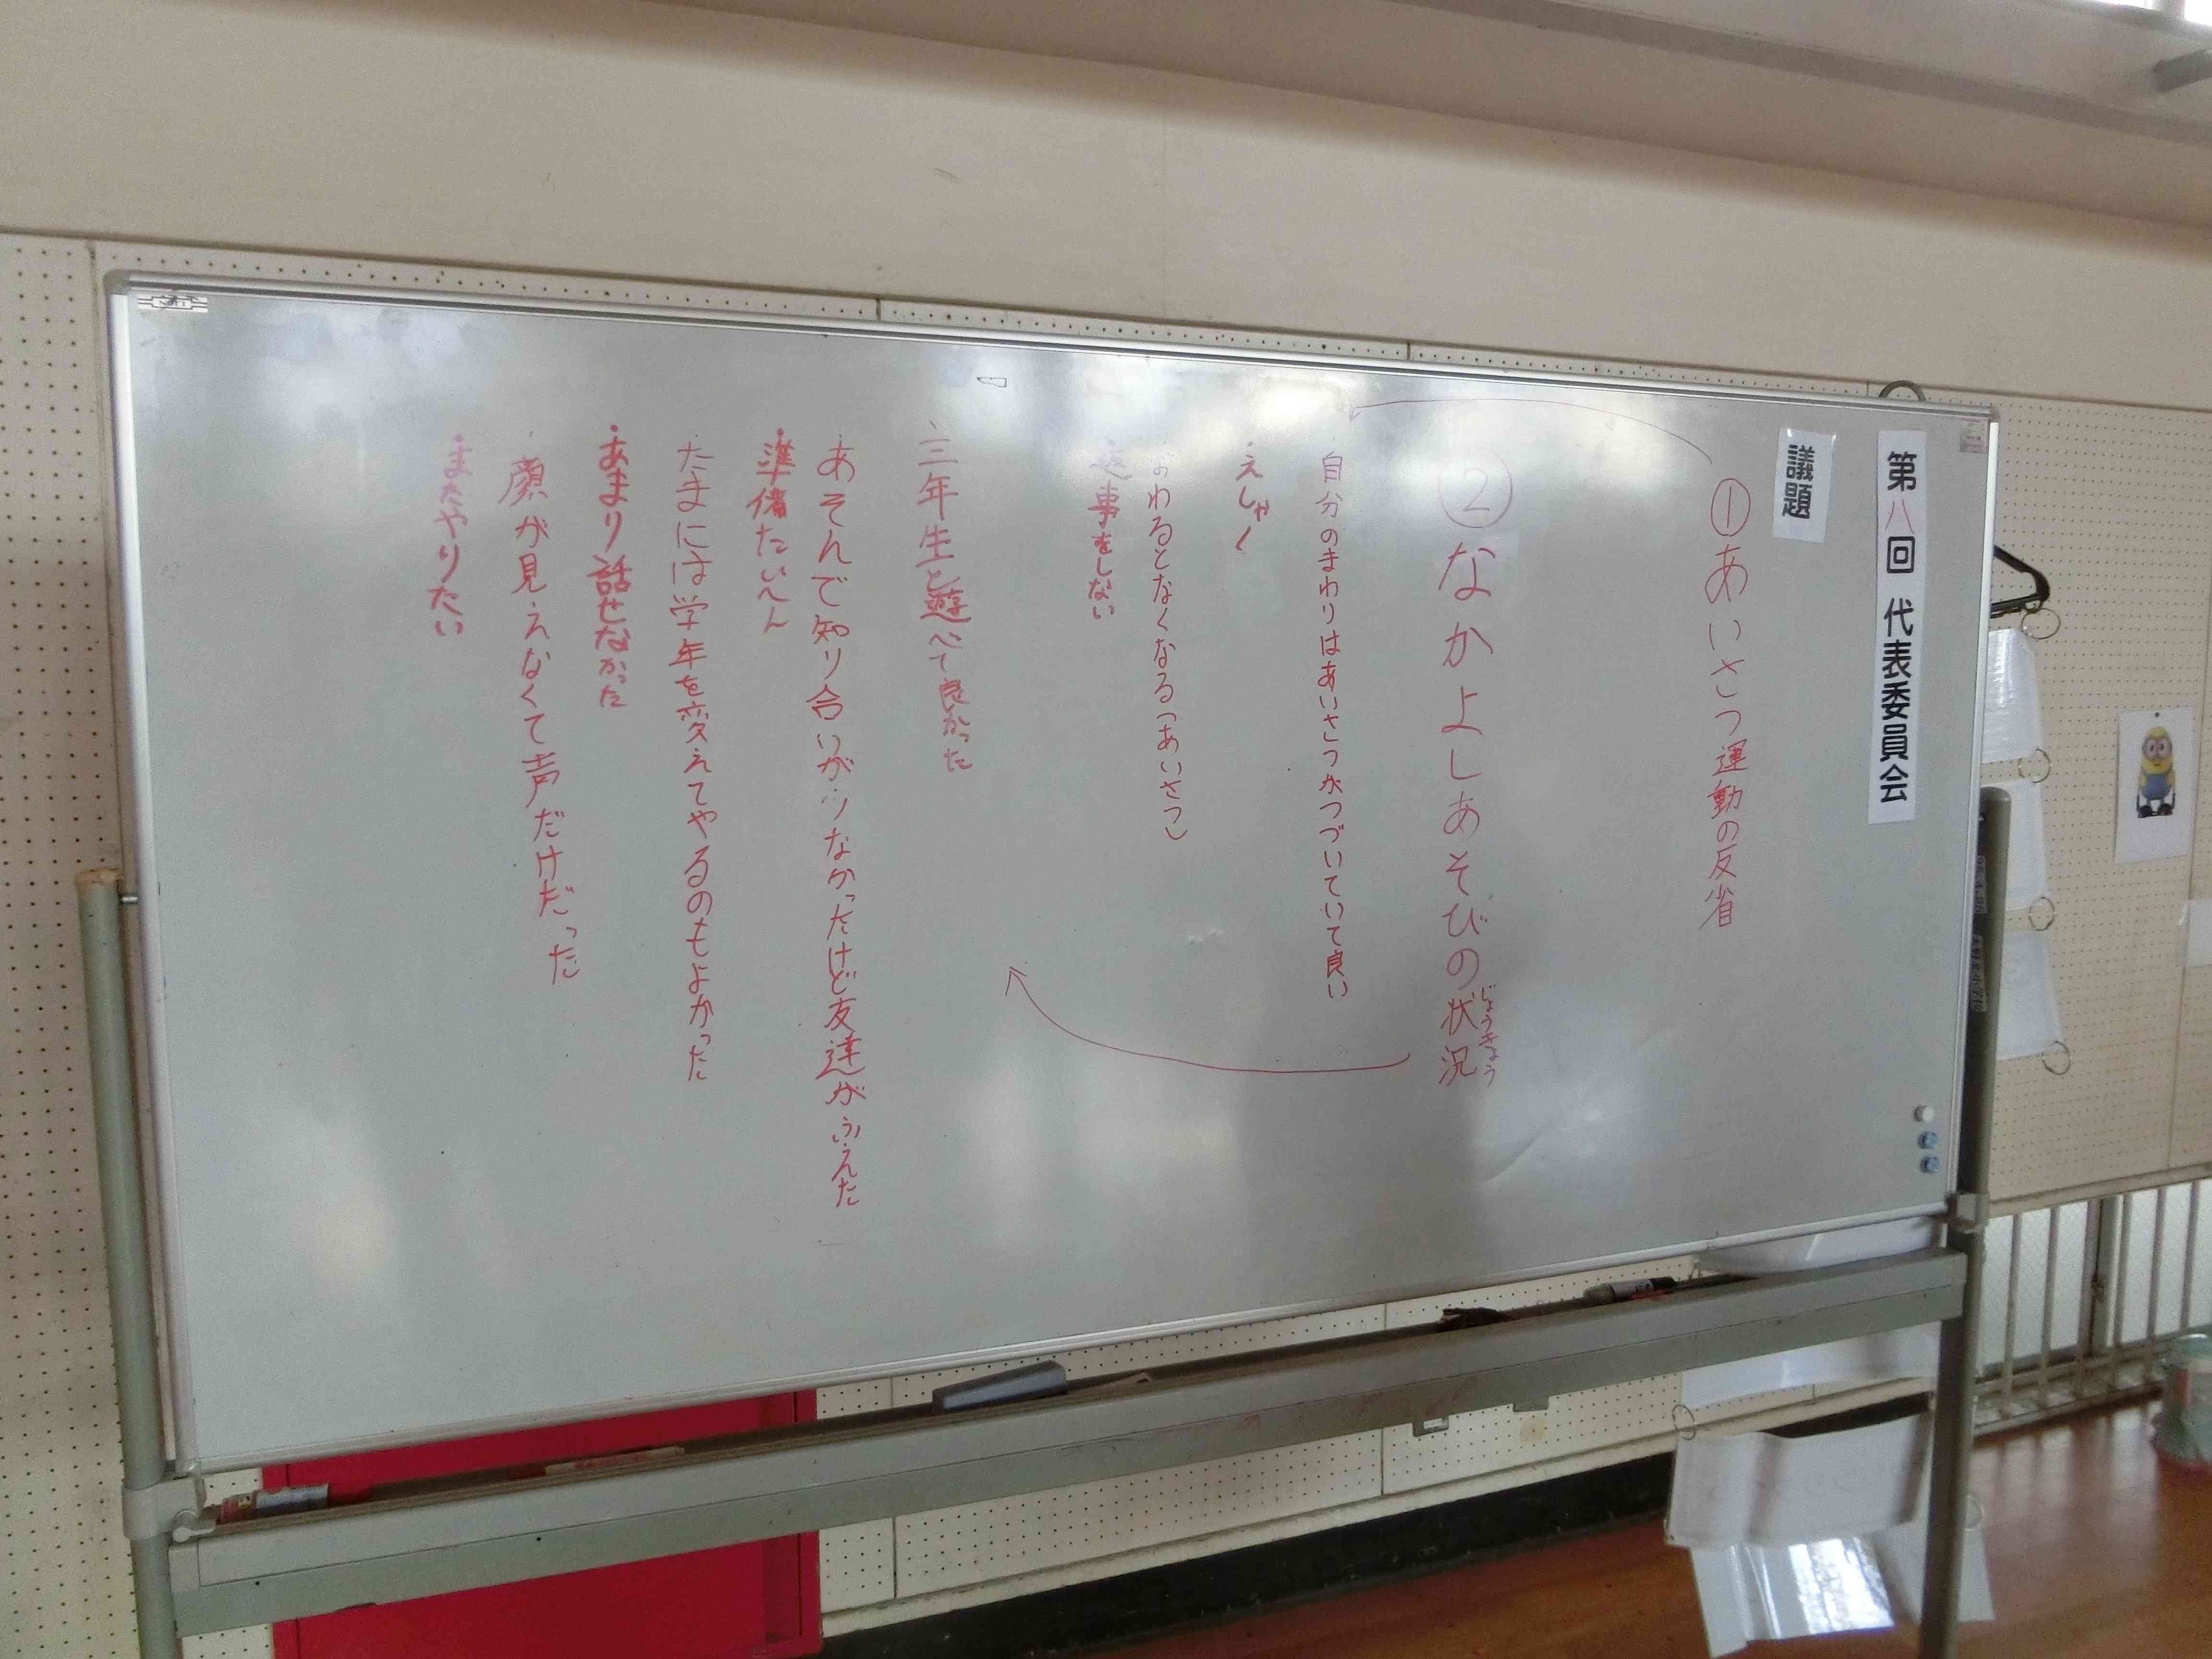 第八回 代表委員会
議題
①あいさつ運動の反省
②なかよしあそびの状況
じょうきょう
自分のまわりはあいさつがつづいていて良い
・えしゃく
・おわるとなくなる(あいさつ)
・返事をしない
・三年生と遊べて良かった
・あそんで知り合いが少なかったけど友達がふえた
・準備たいへん
・たまには学年を変えてやるのもよかった
・あまり話せなかった
顔が見えなくて声だけだった
・またやりたい